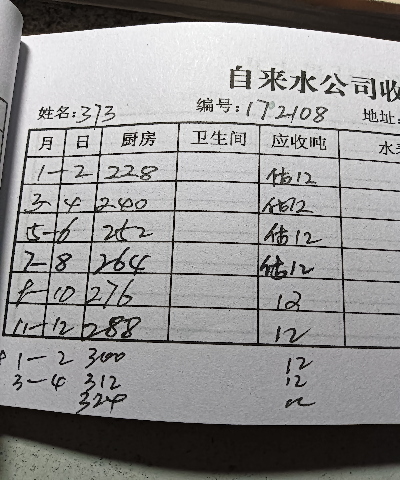 自来水公司收
姓名:373 编号:172108 地址:
月 日 厨房 卫生间 应收吨 水
1-2 228 估12
3-4 240 估12
5-6 252 估12
7-8 264 估12
9-10 276 12
11-12 288 12
1-2 300 12
3-4 312 12
324 12